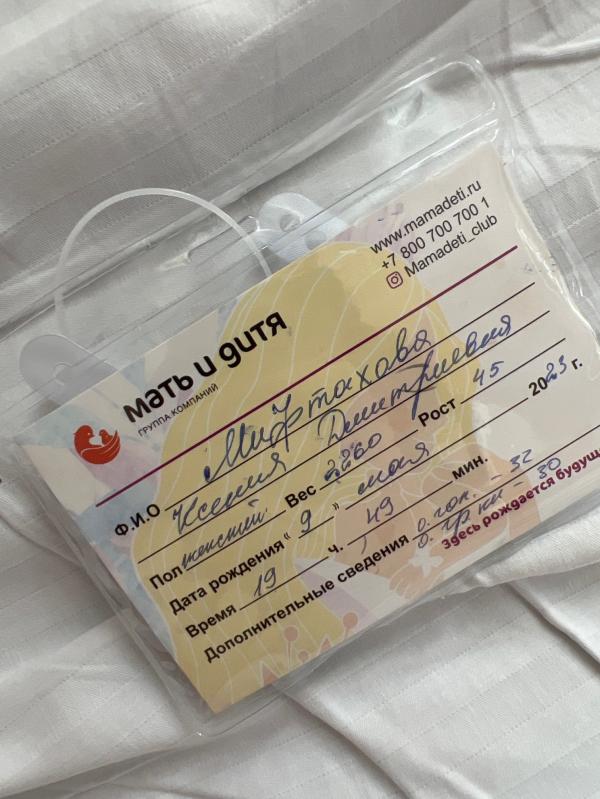 www.mamadeti.ru
+7 800 700 700 1
Mamadeti_club
мать и дитя
ГРУППА КОМПАНИЙ
Ф.И.О Мифтахова
Ксения Дмитриевна
Пол женский Вес 2260 Рост 45
Дата рождения "9" мая 2023 г.
Время 19 ч. 49 мин.
Дополнительные сведения о. гол. - 32
о. гр. кл - 30
Здесь рождается будущ